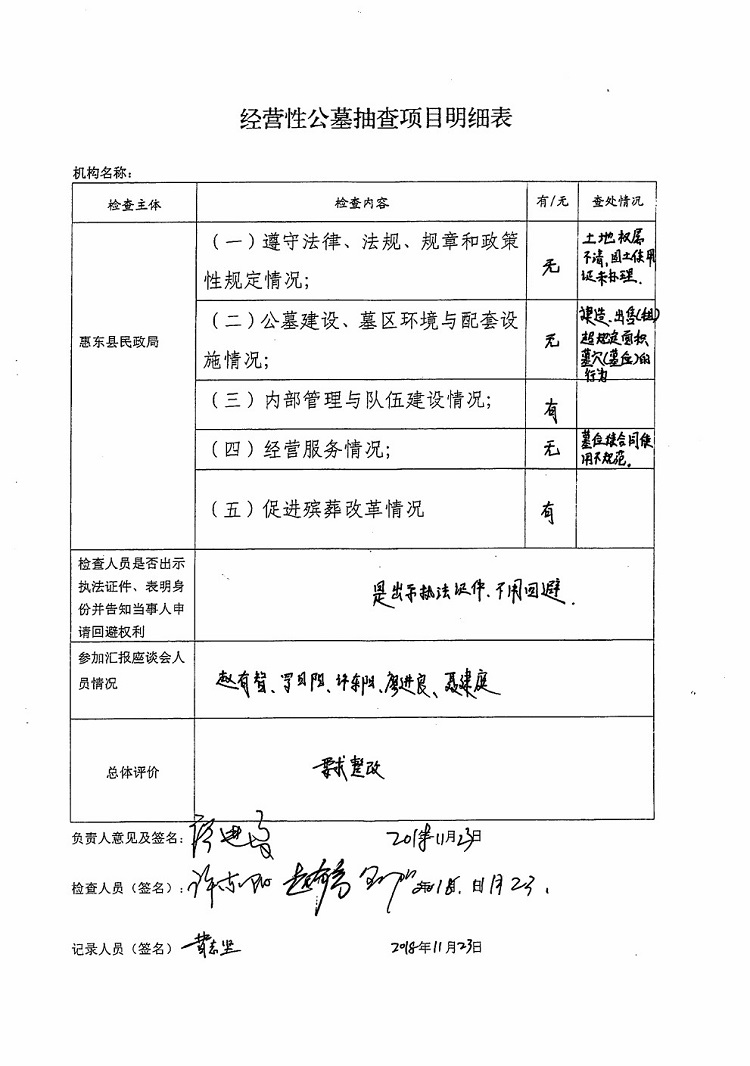 经营性公墓抽查项目明细表
机构名称:
检查主体 检查内容 有/无 查处情况
惠东县民政局
(一)遵守法律、法规、规章和政策
性规定情况;
无
土地权属
不清,国土使用
证未办理.
(二)公墓建设、墓区环境与配套设
施情况;
无
建造、出售(租)
超规定面积
墓穴(墓位)的
行为
(三)内部管理与队伍建设情况;
有
(四)经营服务情况;
无
墓位
合同使
用不规范.
(五)促进殡葬改革情况
有
检查人员是否出示
执法证件、表明身
份并告知当事人申
请回避权利
是出示执法证件、不用回避.
参加汇报座谈会人
员情况
赵有智、许东阳、廖进良、聂建庭
总体评价
要求整改
负责人意见及签名:
2018年11月23日
检查人员(签名):
许东阳
记录人员(签名)
2018年11月23日